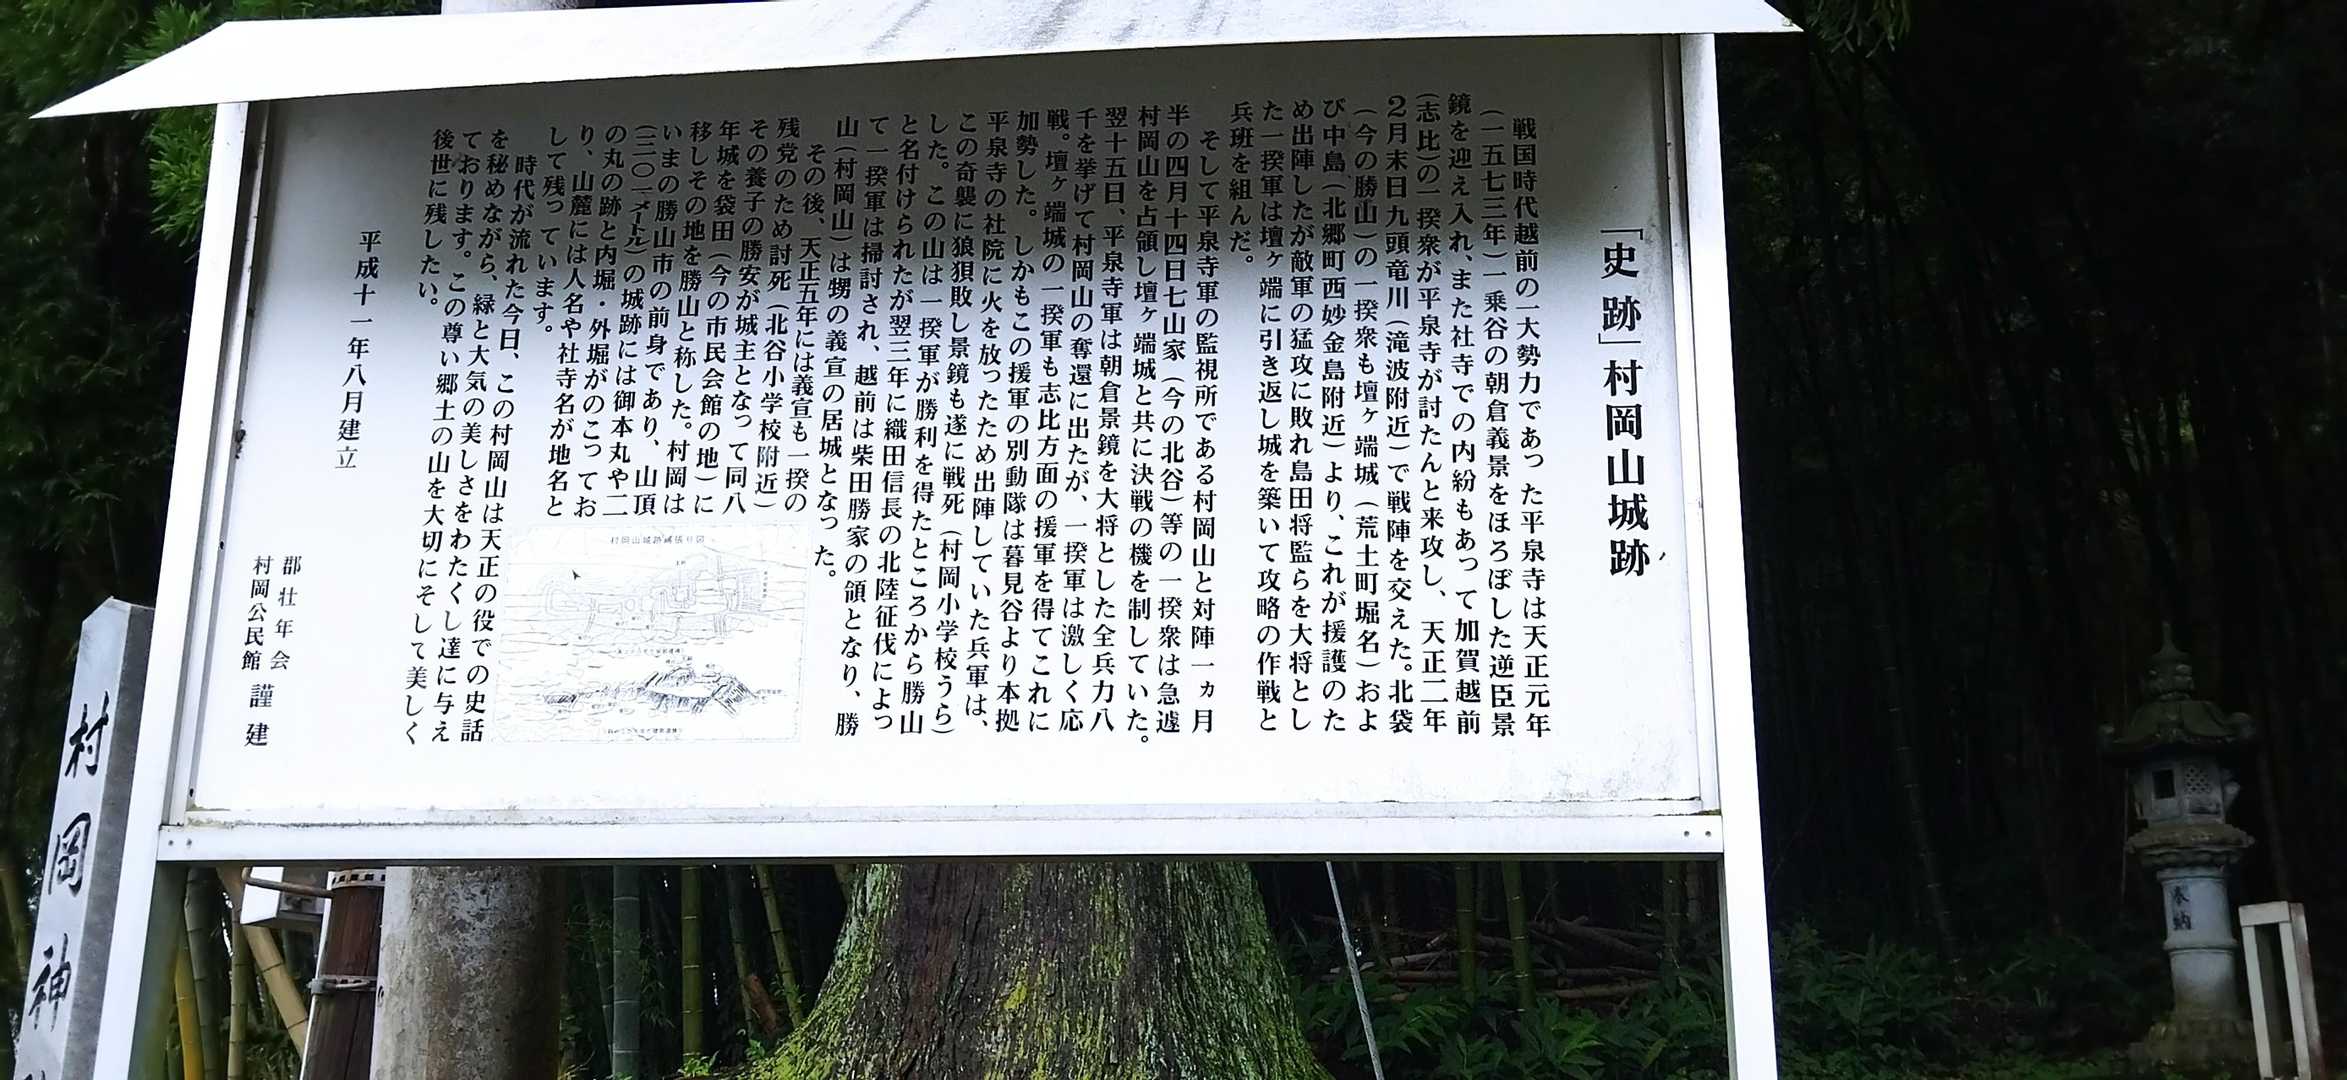 「史跡」村岡山城跡
戦国時代越前の一大勢力であった平泉寺は天正元年
(一五七三年)一乗谷の朝倉義景をほろぼした逆臣景
鏡を迎え入れ、また社寺での内紛もあって加賀越前
(志比)の一揆衆が平泉寺が討たんと来攻し、天正二年
2月末日九頭竜川(滝波附近)で戦陣を交えた。北袋
(今の勝山)の一揆衆も壇ヶ端城(荒土町堀名)およ
び中島(北郷町西妙金島附近)より、これが援護のた
め出陣したが敵軍の猛攻に敗れ島田将監らを大将とし
た一揆軍は壇ヶ端に引き返し城を築いて攻略の作戦と
兵班を組んだ。
そして平泉寺軍の監視所である村岡山と対陣一ヵ月
半の四月十四日七山家(今の北谷)等の一揆衆は急遽
村岡山を占領し壇ヶ端城と共に決戦の機を制していた。
翌十五日、平泉寺軍は朝倉景鏡を大将とした全兵力八
千を挙げて村岡山の奪還に出たが、一揆軍は激しく応
戦。壇ヶ端城の一揆軍も志比方面の援軍を得てこれに
加勢した。しかもこの援軍の別動隊は暮見谷より本拠
平泉寺の社院に火を放ったため出陣していた兵軍は、
この奇襲に狼狽敗し景鏡も遂に戦死(村岡小学校うら)
した。この山は一揆軍が勝利を得たところから勝山
と名付けられたが翌三年に織田信長の北陸征伐によっ
て一揆軍は掃討され、越前は柴田勝家の領となり、勝
山(村岡山)は甥の義宣の居城となった。
その後、天正五年には義宣も一揆の
残党のため討死(北谷小学校附近)
その養子の勝安が城主となって同八
年城を袋田(今の市民会館の地)に
移しその地を勝山と称した。村岡は
いまの勝山市の前身であり、山頂
(三〇一メートル)の城跡には御本丸や二
の丸の跡と内堀・外堀がのこってお
り、山麓には人名や社寺名が地名と
して残っています。
時代が流れた今日、この村岡山は天正の役での史話
を秘めながら、緑と大気の美しさをわたくし達に与え
ております。この尊い郷土の山を大切にそして美しく
後世に残したい。
平成十一年八月建立
郡壮年会
村岡公民館 謹建
村岡山城跡縄張り図
村岡神
奉納